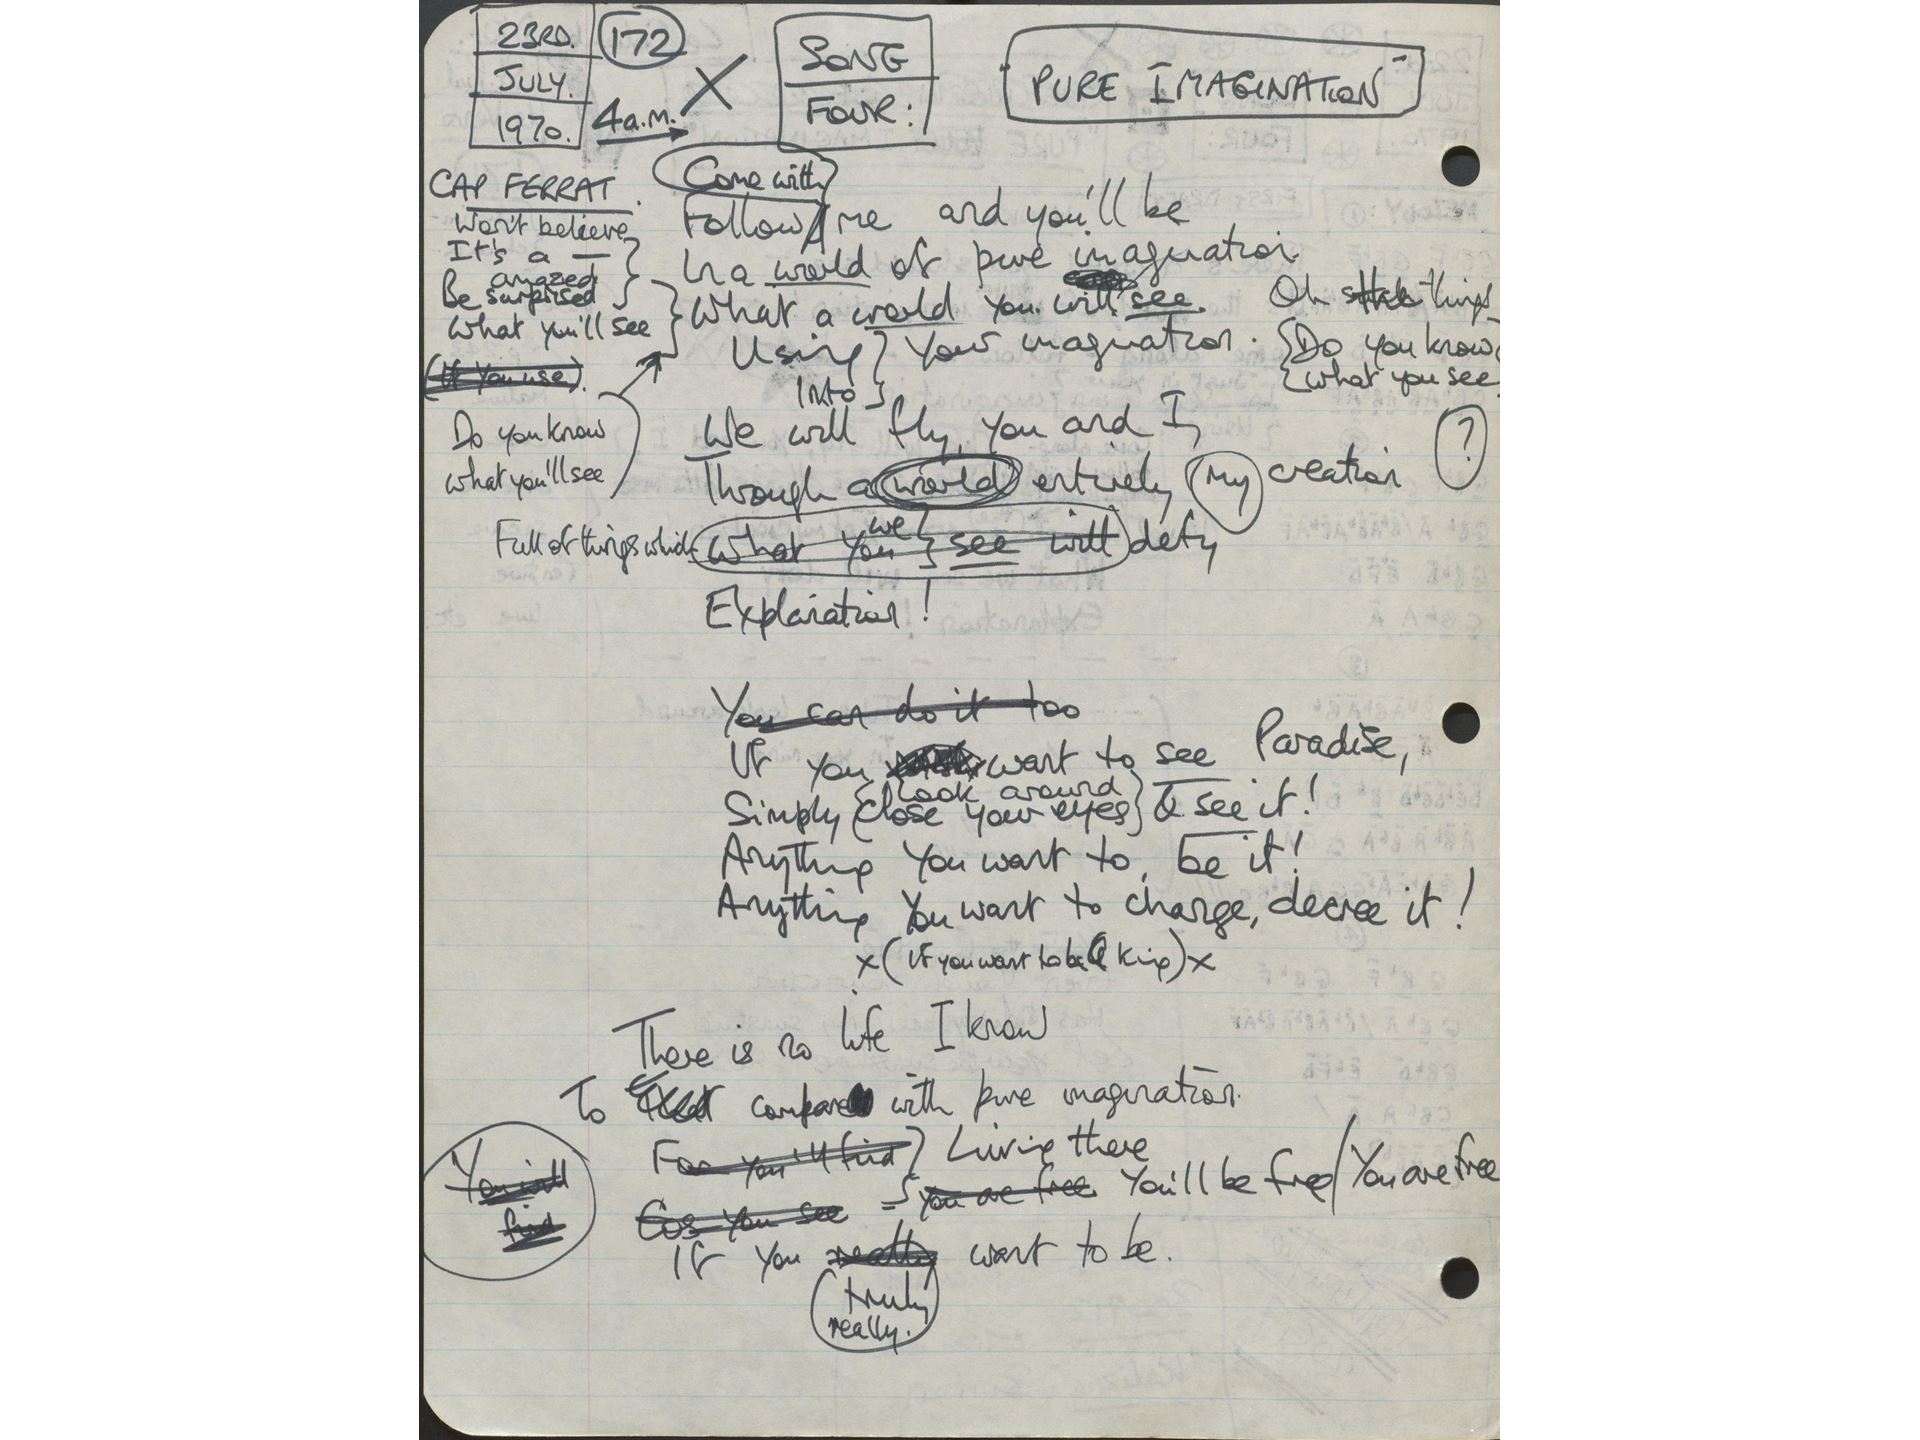 23RD.
JULY.
1970.
172
4 a.m.
X
SONG
FOUR:
PURE IMAGINATION"
CAP FERRAT.
Come with
Follow me and you'll be
Won't believe
It's a —
In a world of pure imagination.
amazed
Be surprised
What you'll see
What a world you will see.
Oh things
Using
Into
Your imagination.
Do you know
what you see
(If you use).
We will fly, you and I,
?
Do you know
what you'll see
Through a world entirely my creation
Full of things which
we
What you see will defy
Explanation!
You can do it too
If you want to see Paradise,
look around
Simply close your eyes & see it!
Anything you want to, be it!
Anything you want to change, decree it!
x (If you want to be a king) x
There is no life I know
To compare with pure imagination.
For you'll find
Living there
You will
find
Cos you see = you are free You'll be free/You are free
If you really want to be.
truly
really.